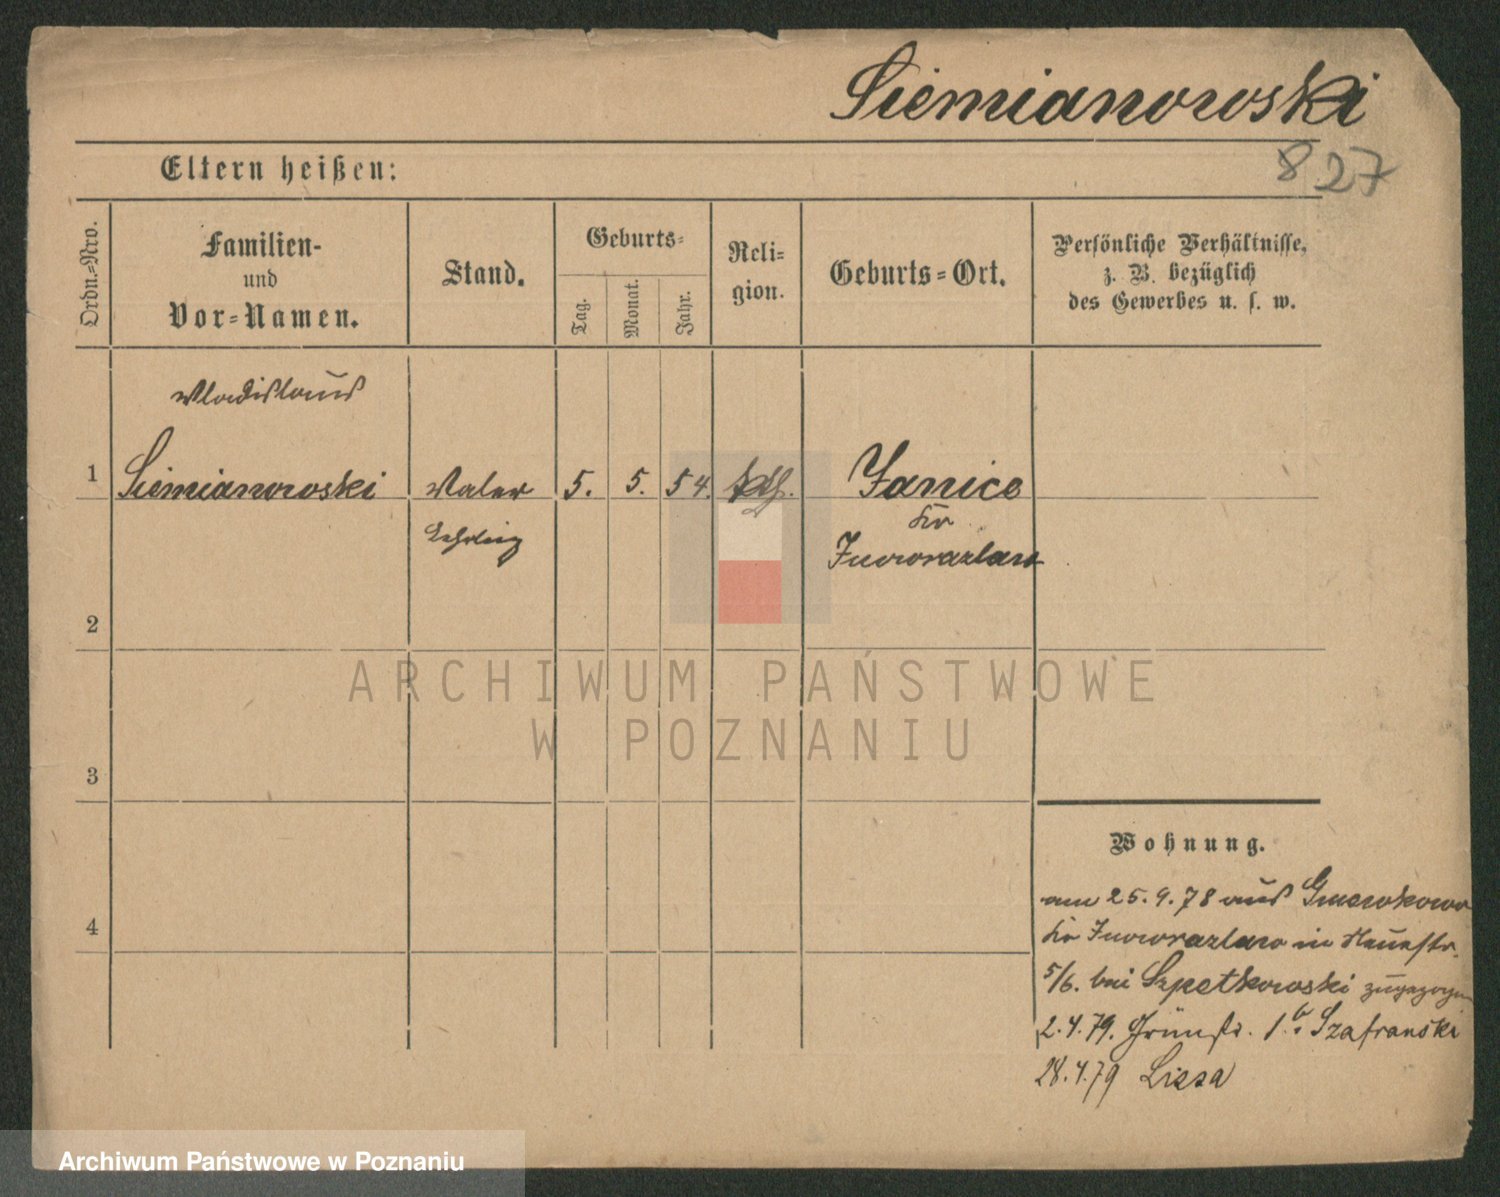 Siemianowski
827
Eltern heißen:
Ordn.-Nro.
Familien-
und
Vor-Namen.
Stand.
Geburts-
Tag.
Monat.
Jahr.
Reli-
gion.
Geburts-Ort.
Persönliche Verhältnisse,
z. B. bezüglich
des Gewerbes u. s. w.
Wladislaus
1 Siemianowski Maler 5. 5. 54. kth. Janice
Lehrling Kr
Inowrazlaw
2
3
4
Wohnung.
am 25.9.78 aus Gniewkowo
Kr Inowrazlaw in Neuestr.
5/6. bei Szpetkowski zugezogen
2.4.79. Grünstr. 1. b. Szafranski
28.4.79 Lissa
ARCHIWUM PAŃSTWOWE
W POZNANIU
Archiwum Państwowe w Poznaniu